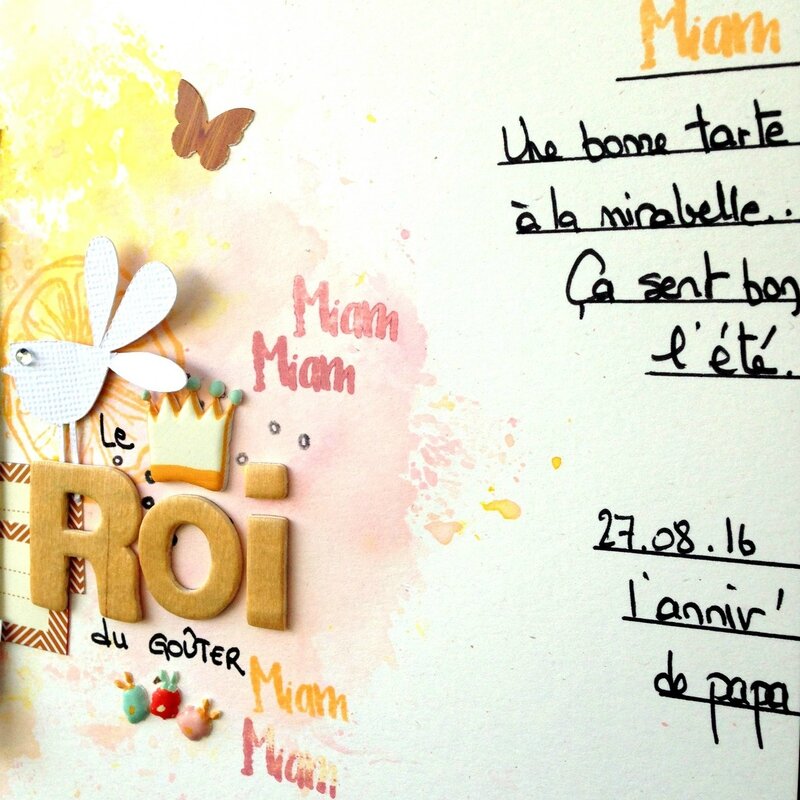 Miam
Une bonne tarte
à la mirabelle..
Ça sent bon
l'été.
Miam
Miam
Le
Roi
du GOÛTER
Miam
Miam
27.08.16
l'anniv'
de papa